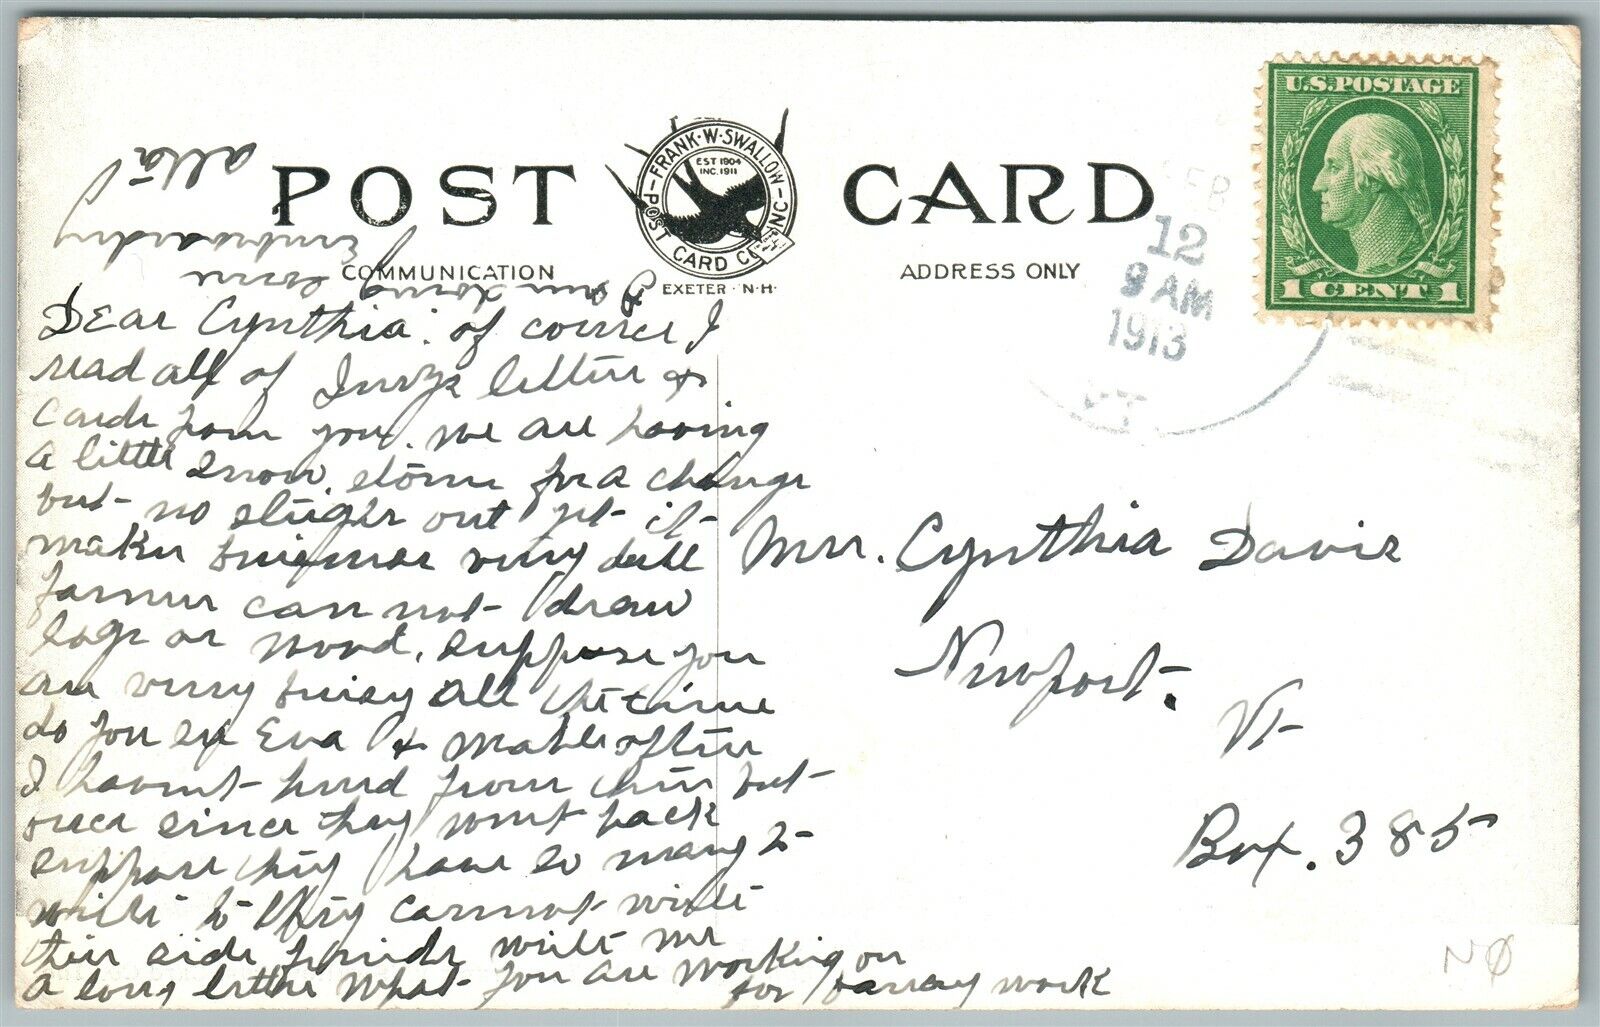 POST CARD
FRANK·W·SWALLOW
POST CARD CO. INC
EST 1904
INC. 1911
EXETER · N·H·
COMMUNICATION
ADDRESS ONLY
U.S.POSTAGE
1 CENT 1
FEB
12
9 AM
1913
VT
Dear Cynthia: of course I
read all of letters &
cards from you. we are having
a little snow storm for a change
but no sleighs out yet it
makes very dull
farmers can not draw
logs or wood, suppose you
are very busy all the time
do you see Eva & Mable often
I havent heard from them but
once since they went back
suppose they have so many to
write to they cannot write
their side friends write me
a long letter what you are working on
for fancy work
I am doing some
Embroidery
also
Mrs. Cynthia Davis
Newport.
Vt
Box. 385
NØ